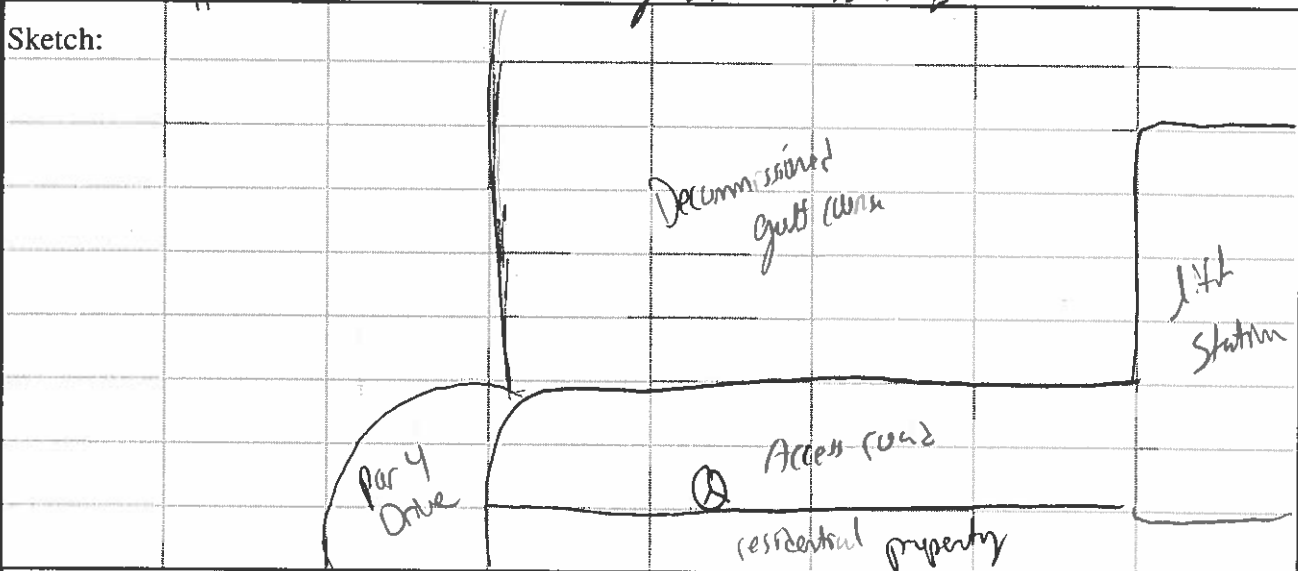 Sketch:
Decommissioned
golf course
lift
Station
Par 4
Drive
Access road
residential property